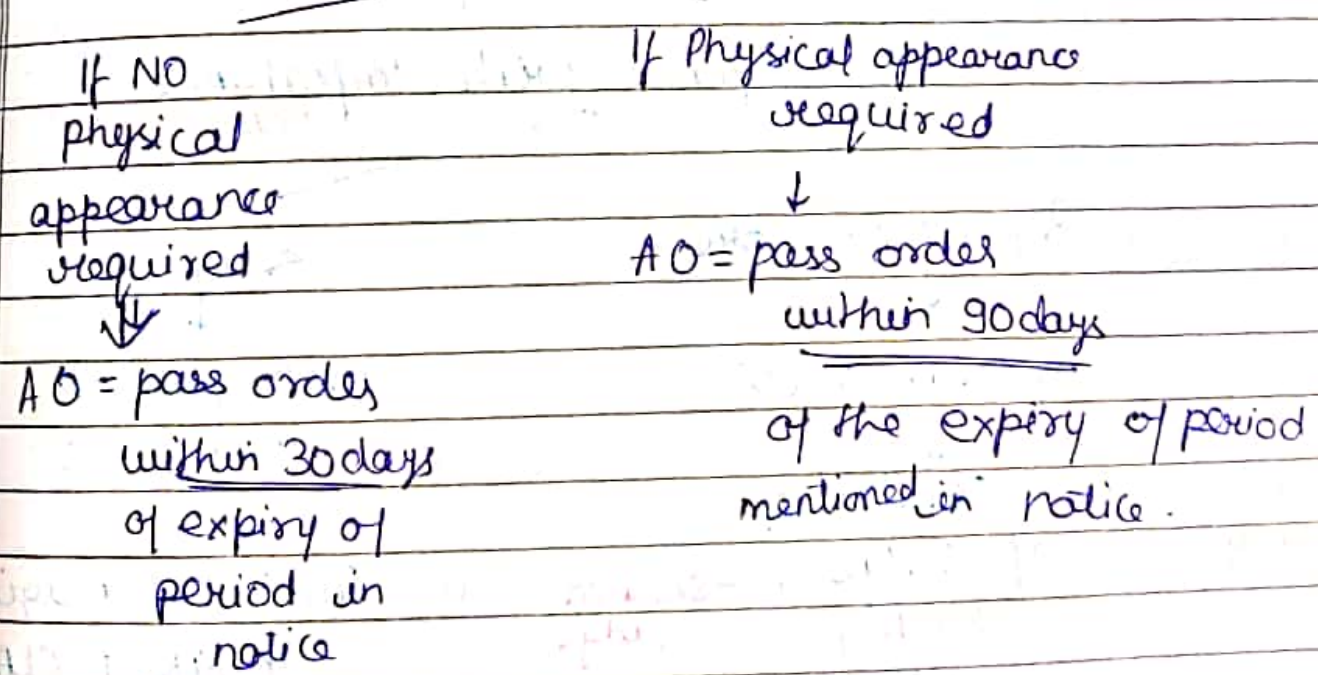 If NO
physical
appearance
required
AO = pass order
within 30days
of expiry of
period in
notice
If Physical appearance
required
↓
AO = pass order
within 90days
of the expiry of period
mentioned in notice.